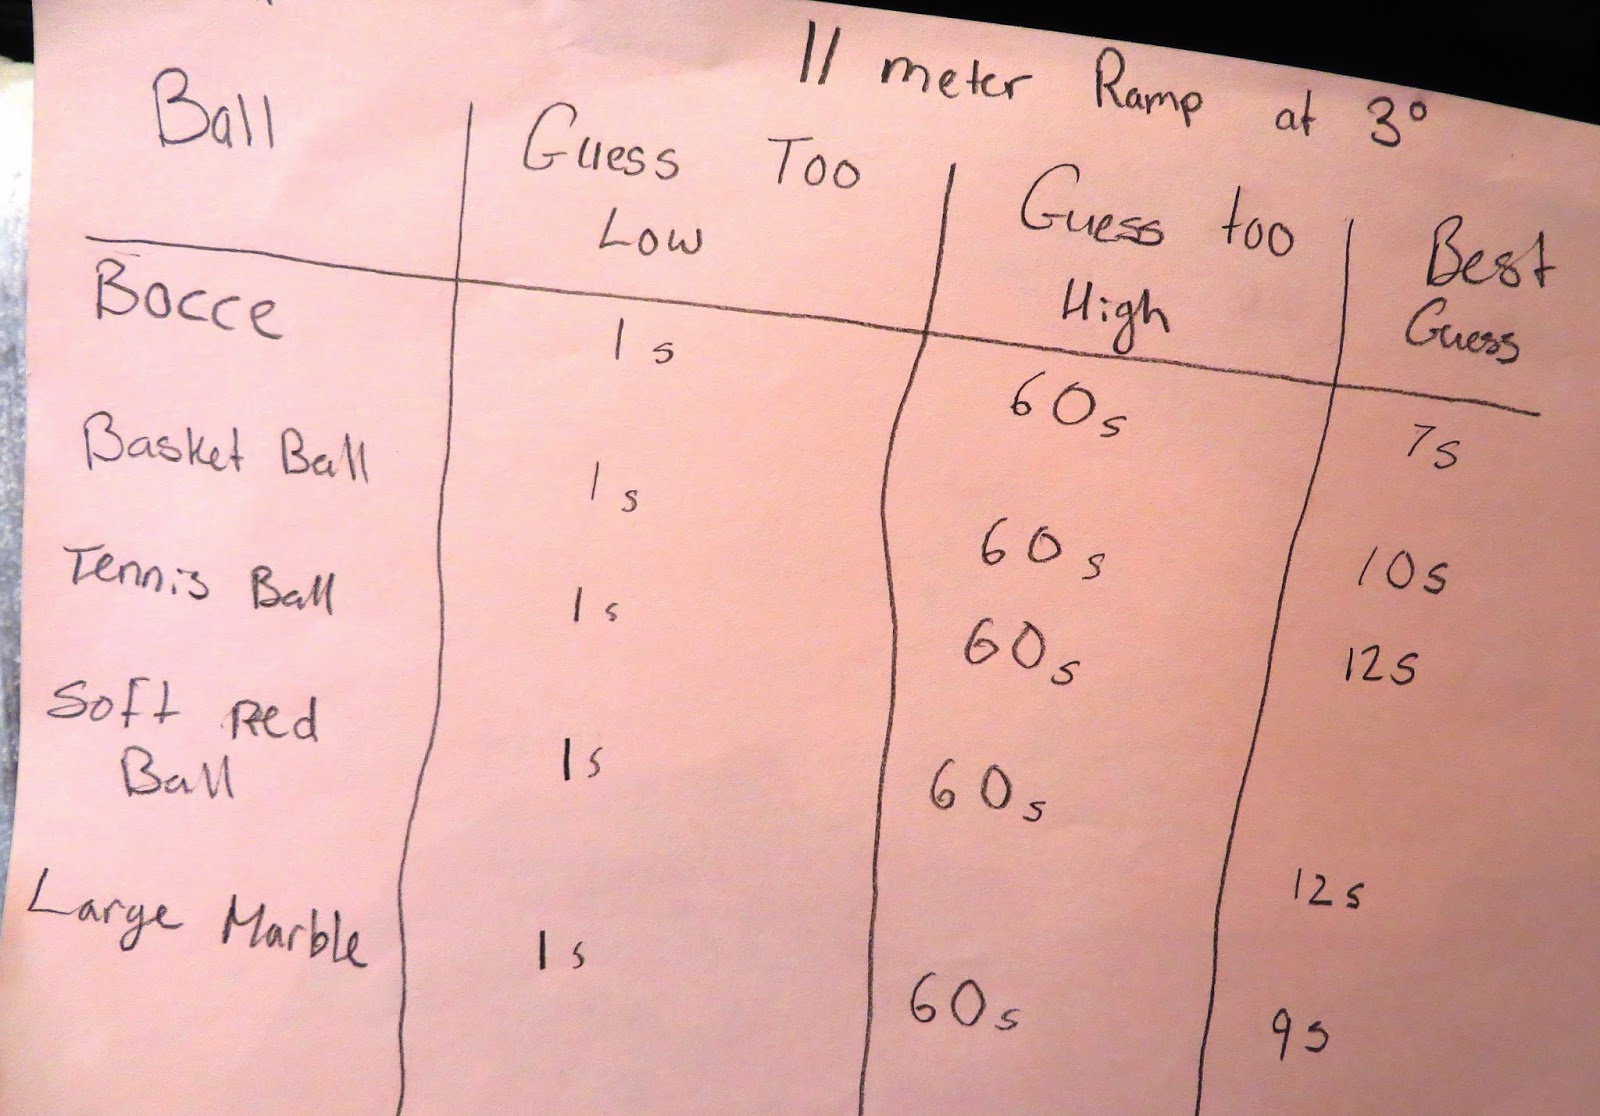 11 meter Ramp at 3°
Ball Guess Too Low Guess too High Best Guess
Bocce 1s 60s 7s
Basket Ball 1s 60s 10s
Tennis Ball 1s 60s 12s
Soft Red Ball 1s 60s 12s
Large Marble 1s 60s 9s